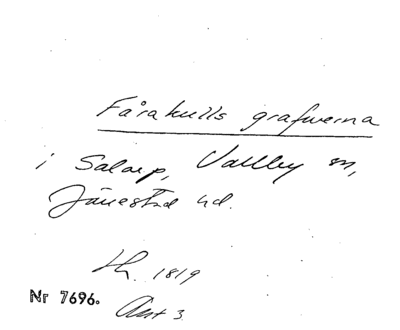 Fårakulls grafwerna
i Salarp, Vallby sn,
Järrestad hd.
Lh. 1819
Nr 7696.
Ant 3.